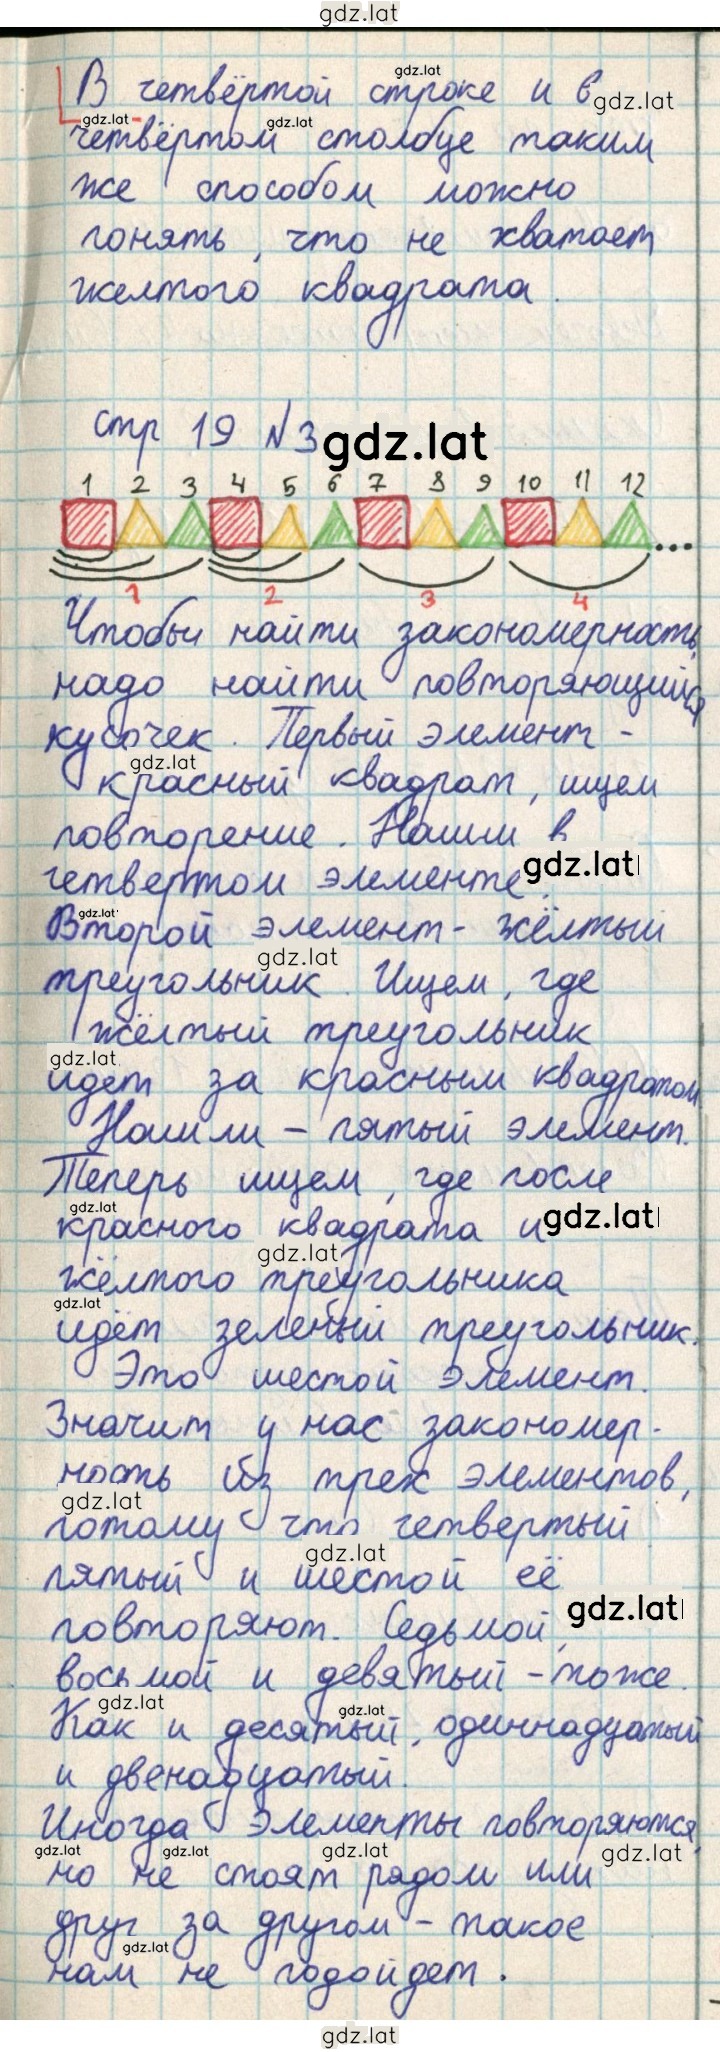 gdz.lat
В четвёртой строке и в
четвёртом столбце таким
же способом можно
понять, что не хватает
желтого квадрата.
стр 19 №3
1 2 3 4 5 6 7 8 9 10 11 12
...
1 2 3 4
Чтобы найти закономерность,
надо найти повторяющийся
кусочек. Первый элемент -
красный квадрат, ищем
повторение. Нашли в
четвертом элементе.
Второй элемент - жёлтый
треугольник. Ищем, где
жёлтый треугольник
идет за красным квадратом
Нашли - пятый элемент.
Теперь ищем, где после
красного квадрата и
жёлтого треугольника
идёт зеленый треугольник.
Это шестой элемент.
Значит у нас закономер-
ность из трех элементов,
потому что четвертый
пятый и шестой её
повторяют. Седьмой,
восьмой и девятый - тоже.
Как и десятый, одиннадцатый
и двенадцатый.
Иногда элементы повторяются,
но не стоят рядом или
друг за другом - такое
нам не подойдет.
gdz.lat